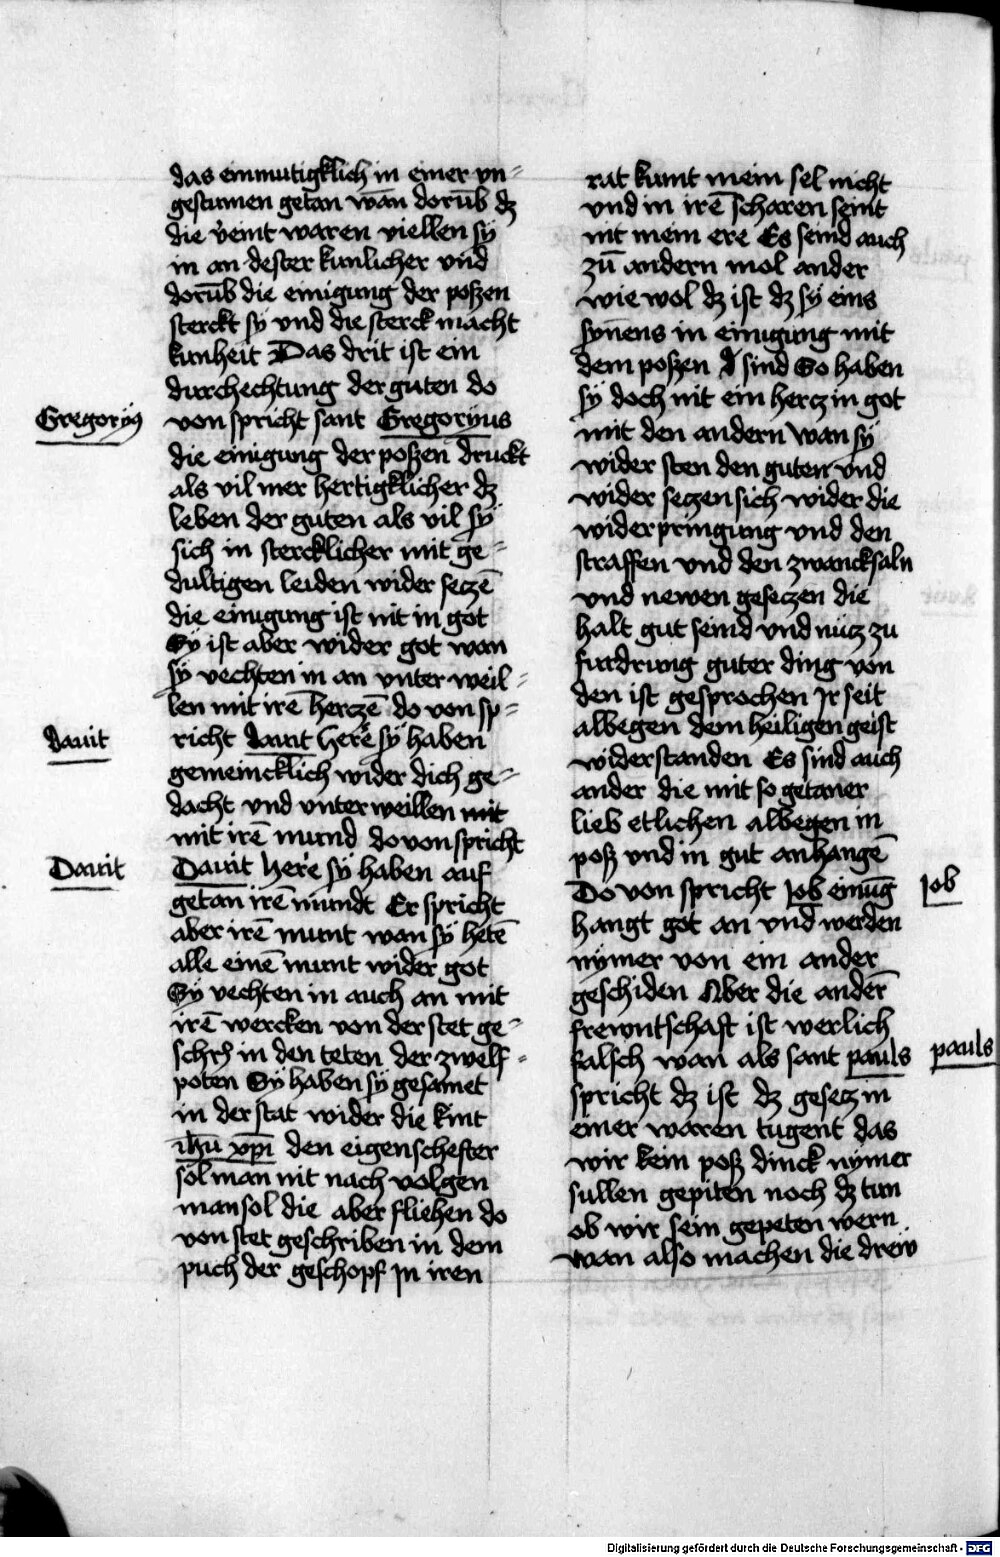 das einmutigklich in einer vn=
gestumen getan wān dorūb dz
die veint waren viellen sÿ
in an dester kunlicher vnd
dorūb die einigung der poszen
sterckt sÿ vnd die sterck macht
kunheit Das drit ist ein
durchechtung der guten do
Gregorÿus
von spricht sant Gregorÿus
die einigung der poszen druckt
als vil mer hertigklicher dz
leben der guten als vil sÿ
sich in stercklicher mit ge=
dultigen leiden wider seczē
die einigung ist nit in got
Sÿ ist aber wider got wan
sÿ vechten in an vnter weil=
len mit irē herczē do von sp=
dauit
richt dauit here sÿ haben
gemeincklich wider dich ge=
dacht vnd vnterweillen mit
mit irē mund do von spricht
Dauit
Dauit here sÿ haben auf
getan irē mundt Er spricht
aber irē munt wan sÿ hetē
alle einē munt wider got
Sÿ vechten in auch an mit
irē wercken von der stet ge=
schrͥ in den teten der zwelf=
poten Sÿ haben sÿ gesamet
in der stat wider die kint
ihū xpī den eigenschefter
sol man nit nach volgen
man sol die aber fliehen do
von stet geschriben in dem
puch der geschopf Jn iren
rat kumt mein sel nicht
vnd in irē scharen seint
nit mein ere Es seind auch
zū andern mol ander
wie wol dz ist dz sÿ eins
sÿnens in einigung mit
dem poszen sind So haben
sÿ doch nit ein hercz in got
mit den andern wan sÿ
wider sten den guten vnd
wider seczen sich wider die
widerpringung vnd den
straffen vnd den zwancksaln
vnd newen geseczen die
halt gut seind vnd nücz zu
furdrung guter ding von
den ist gesprochen Jr seit
albegen dem heiligen geist
widerstanden Es sind auch
ander die mit so getaner
lieb etlichen albegen in
posz vnd in gut anhangē
Do von spricht Job einūg
Job
hangt got an vnd werden
nÿmer von ein ander
geschiden Aber die anderē
frewntschaft ist werlich
falsch wan als sant pauls
pauls
spricht dz ist dz gesecz in
einer waren tugent das
wir kein posz dinck nÿmer
sullen gepiten noch dz tun
ob wir sein gepeten wern.
wan also machen die drew